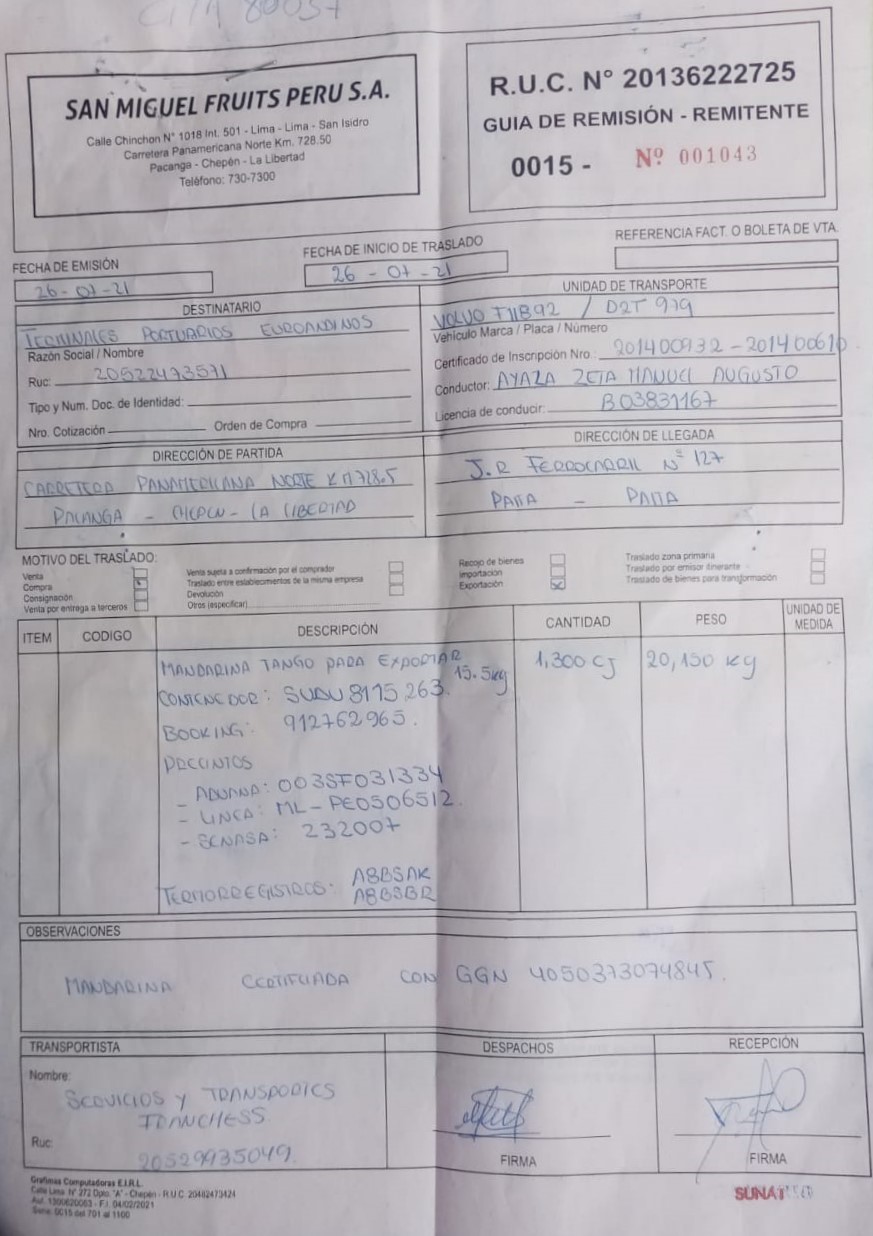 CITA 80037
SAN MIGUEL FRUITS PERU S.A.
Calle Chinchon N° 1018 Int. 501 - Lima - Lima - San Isidro
Carretera Panamericana Norte Km. 728.50
Pacanga - Chepén - La Libertad
Teléfono: 730-7300
R.U.C. N° 20136222725
GUIA DE REMISIÓN - REMITENTE
0015 - Nº 001043
FECHA DE EMISIÓN
26-07-21
FECHA DE INICIO DE TRASLADO
26-07-21
REFERENCIA FACT. O BOLETA DE VTA.
DESTINATARIO
TERMINALES PORTUARIOS EUROANDINOS
Razón Social / Nombre
Ruc: 20522473571
Tipo y Num. Doc. de Identidad:
Nro. Cotización Orden de Compra
UNIDAD DE TRANSPORTE
VOLVO T1I892 / D2T 979
Vehículo Marca / Placa / Número
Certificado de Inscripción Nro.: 201400932-201400610
Conductor: AYALA ZETA MANUEL AUGUSTO
Licencia de conducir: B03831167
DIRECCIÓN DE PARTIDA
CARRETERA PANAMERICANA NORTE KM728.5
PACANGA - CHEPEN - LA LIBERTAD
DIRECCIÓN DE LLEGADA
J.R FERROCARRIL Nº 127
PAITA - PAITA
MOTIVO DEL TRASLADO:
Venta
Compra
Consignación
Venta por entrega a terceros
Venta sujeta a confirmación por el comprador
Traslado entre establecimientos de la misma empresa
Devolución
Otros (especificar)
Recojo de bienes
Importación
Exportación
Traslado zona primaria
Traslado por emisor itinerante
Traslado de bienes para transformación
ITEM CODIGO DESCRIPCIÓN CANTIDAD PESO UNIDAD DE MEDIDA
MANDARINA TANGO PARA EXPORTAR 15.5kg 1,300 CJ 20,150 kg
CONTENEDOR: SUDU 8175 263.
BOOKING: 912762965.
PRECINTOS
- ADUANA: 003SF031334
- LINEA: ML-PE0506512.
- SENASA: 232007
TERMORREGISTROS: A8BSAK
A8BSBR
OBSERVACIONES
MANDARINA CERTIFICADA CON GGN 4050373074845.
TRANSPORTISTA
Nombre:
SERVICIOS Y TRANSPORTES
TRANCHESS
Ruc:
20529935049.
DESPACHOS
FIRMA
RECEPCIÓN
FIRMA
Grafimas Computadoras E.I.R.L.
Calle Lima N° 272 Dpto. "A" - Chepén - R.U.C. 20482473424
Aut. 1300620063 - F.I. 04/02/2021
Serie: 0015 del 701 al 1100
SUNAT